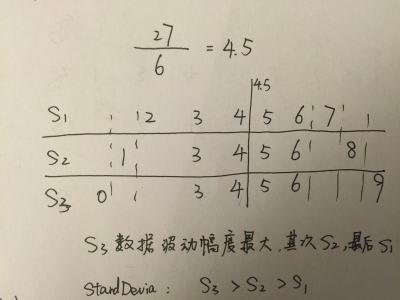 27
6
= 4.5
4.5
S1 2 3 4 5 6 7
S2 1 3 4 5 6 8
S3 0 3 4 5 6 9
S3数据波动幅度最大,其次S2,最后S1
StandDevia: S3 > S2 > S1